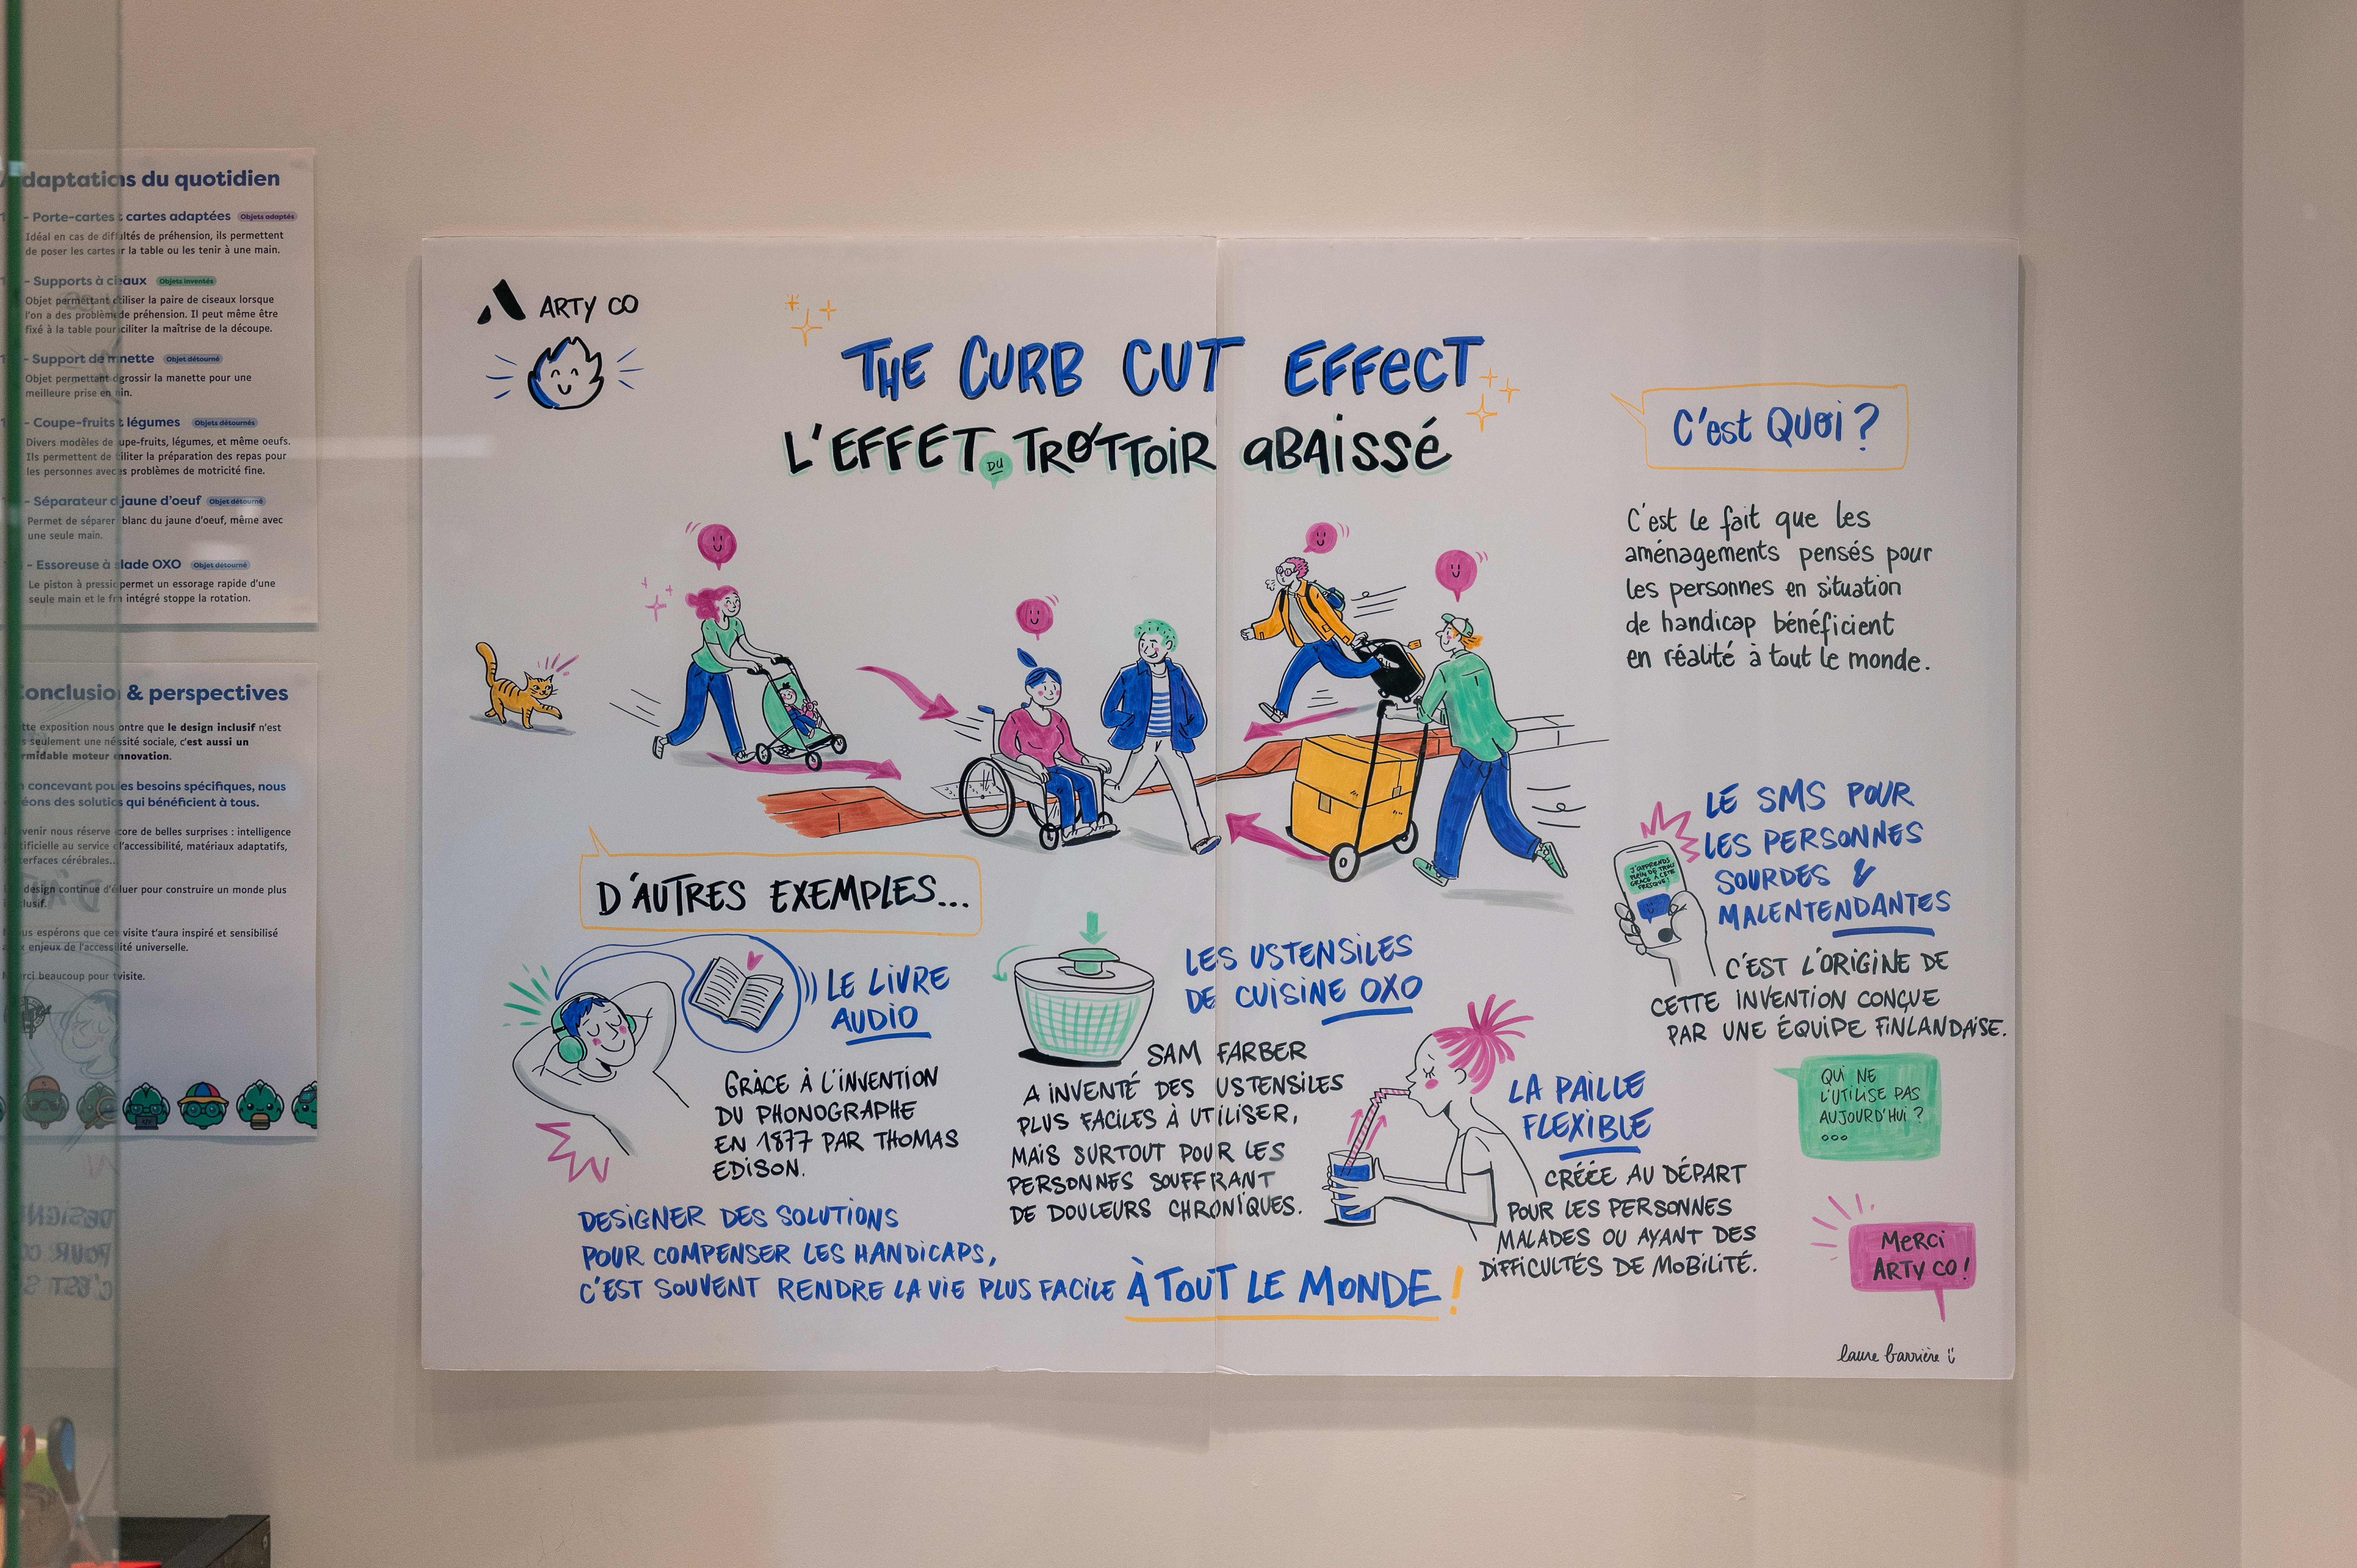 daptations du quotidien
- Porte-cartes cartes adaptées Objets adaptés
Idéal en cas de diff ltés de préhension, ils permettent
de poser les cartes r la table ou les tenir à une main.
- Supports à c eaux Objets inventés
Objet permettant tiliser la paire de ciseaux lorsque
l'on a des problèm de préhension. Il peut même être
fixé à la table pour ciliter la maîtrise de la découpe.
- Support de m nette Objet détourné
Objet permettant grossir la manette pour une
meilleure prise en in.
- Coupe-fruits t légumes Objets détournés
Divers modèles de upe-fruits, légumes, et même oeufs.
Ils permettent de iliter la préparation des repas pour
les personnes avec s problèmes de motricité fine.
- Séparateur d jaune d'oeuf Objet détourné
Permet de séparer blanc du jaune d'oeuf, même avec
une seule main.
- Essoreuse à lade OXO Objet détourné
Le piston à pressi permet un essorage rapide d'une
seule main et le fr intégré stoppe la rotation.
onclusio & perspectives
tte exposition nous ontre que le design inclusif n'est
s seulement une né ssité sociale, c'est aussi un
rmidable moteur nnovation.
concevant pou es besoins spécifiques, nous
éons des soluti s qui bénéficient à tous.
venir nous réserve core de belles surprises : intelligence
tificielle au service l'accessibilité, matériaux adaptatifs,
terfaces cérébrales...
design continue d'é luer pour construire un monde plus
clusif.
us espérons que ce visite t'aura inspiré et sensibilisé
x enjeux de l'acces ité universelle.
rci beaucoup pour visite.
ARTY CO
THE CURB CUT EFFECT
L'EFFET DU TROTTOIR ABAISSÉ
C'est QUOI ?
C'est le fait que les
aménagements pensés pour
les personnes en situation
de handicap bénéficient
en réalité à tout le monde.
D'AUTRES EXEMPLES...
LE LIVRE
AUDIO
GRÂCE À L'INVENTION
DU PHONOGRAPHE
EN 1877 PAR THOMAS
EDISON.
LES USTENSILES
DE CUISINE OXO
SAM FARBER
A INVENTÉ DES USTENSILES
PLUS FACILES À UTILISER,
MAIS SURTOUT POUR LES
PERSONNES SOUFFRANT
DE DOULEURS CHRONIQUES.
LA PAILLE
FLEXIBLE
CRÉÉE AU DÉPART
POUR LES PERSONNES
MALADES OU AYANT DES
DIFFICULTÉS DE MOBILITÉ.
LE SMS POUR
LES PERSONNES
SOURDES &
MALENTENDANTES
J'APPRENDS
PLEIN DE TRUCS
GRÂCE À CETTE
FRESQUE!
C'EST L'ORIGINE DE
CETTE INVENTION CONÇUE
PAR UNE ÉQUIPE FINLANDAISE.
QUI NE
L'UTILISE PAS
AUJOURD'HUI ?
...
DESIGNER DES SOLUTIONS
POUR COMPENSER LES HANDICAPS,
C'EST SOUVENT RENDRE LA VIE PLUS FACILE À TOUT LE MONDE !
MERCI
ARTY CO !
laure barrière